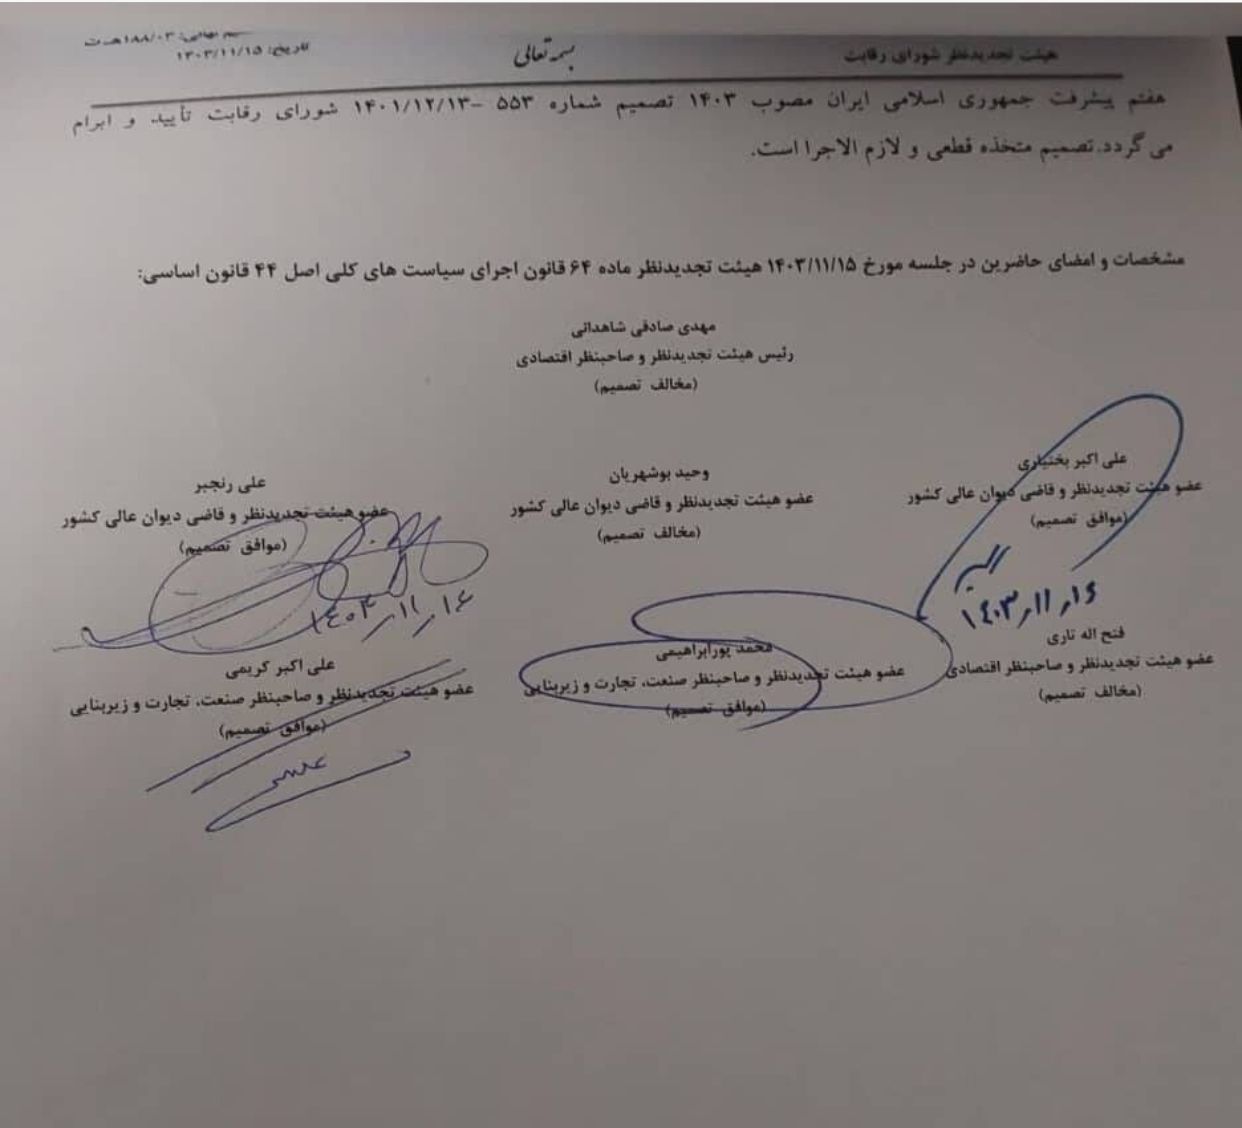 هیئت تجدیدنظر شورای رقابت
بسمه تعالی
۱۸۸/۰۳ هـ ت
تاریخ: ۱۴۰۳/۱۱/۱۵
هفتم پیشرفت جمهوری اسلامی ایران مصوب ۱۴۰۳ تصمیم شماره ۵۵۳ –۱۴۰۱/۱۲/۱۳ شورای رقابت تأیید و ابرام
می گردد.تصمیم متخذه قطعی و لازم الاجرا است.
مشخصات و امضای حاضرین در جلسه مورخ ۱۴۰۳/۱۱/۱۵ هیئت تجدیدنظر ماده ۶۴ قانون اجرای سیاست های کلی اصل ۴۴ قانون اساسی:
مهدی صادقی شاهدانی
رئیس هیئت تجدیدنظر و صاحبنظر اقتصادی
(مخالف تصمیم)
علی اکبر بختیاری
عضو هیئت تجدیدنظر و قاضی دیوان عالی کشور
(موافق تصمیم)
۱۴۰۳٫۱۱٫۱۶
وحید بوشهریان
عضو هیئت تجدیدنظر و قاضی دیوان عالی کشور
(مخالف تصمیم)
علی رنجبر
عضو هیئت تجدیدنظر و قاضی دیوان عالی کشور
(موافق تصمیم)
۱۴۰۳٫۱۱٫۱۶
فتح اله تاری
عضو هیئت تجدیدنظر و صاحبنظر اقتصادی
(مخالف تصمیم)
محمد پورابراهیمی
عضو هیئت تجدیدنظر و صاحبنظر صنعت، تجارت و زیربنایی
(موافق تصمیم)
علی اکبر کریمی
عضو هیئت تجدیدنظر و صاحبنظر صنعت، تجارت و زیربنایی
(موافق تصمیم)